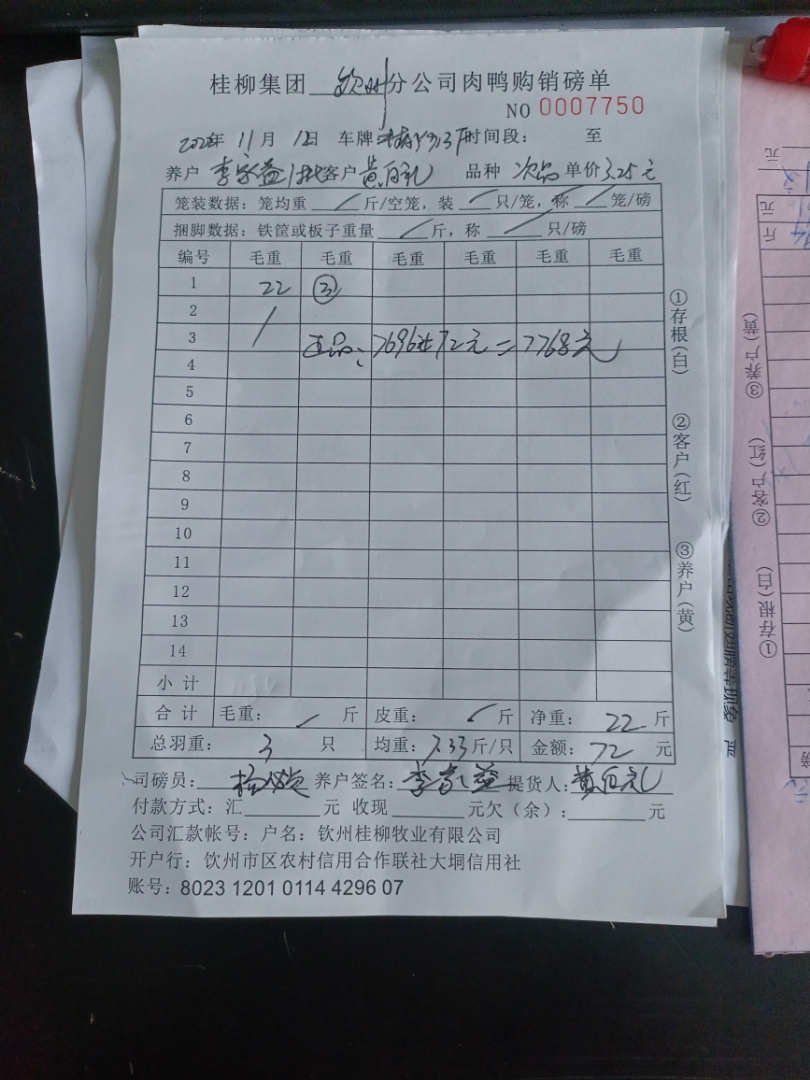 桂柳集团 钦州 分公司肉鸭购销磅单
NO 0007750
年 11 月 12日 车牌 时间段： 至
养户 李家益 客户 黄百礼 品种 次品 单价 3.25 元
笼装数据：笼均重 / 斤/空笼，装 / 只/笼，称 / 笼/磅
捆脚数据：铁筐或板子重量 / 斤，称 / 只/磅
编号 毛重 毛重 毛重 毛重 毛重 毛重
1 22 ③
2 /
3 正品：7696元+72元=7768元
4
5
6
7
8
9
10
11
12
13
14
小 计
合 计 毛重： / 斤 皮重： / 斤 净重： 22 斤
总羽重： 3 只 均重：7.33 斤/只 金额：72 元
司磅员： 养户签名：李家益 提货人：黄百礼
付款方式：汇 元 收现 元欠（余）： 元
公司汇款帐号：户名：钦州桂柳牧业有限公司
开户行：饮州市区农村信用合作联社大垌信用社
账号：8023 1201 0114 4296 07
①存根(白) ②客户(红) ③养户(黄)
①存根(白) ②客户(红) ③养户(黄)